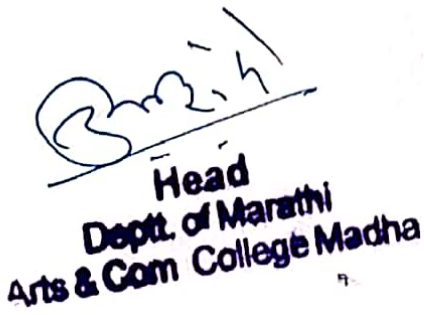 Head
Deptt. of Marathi
Arts & Com College Madha